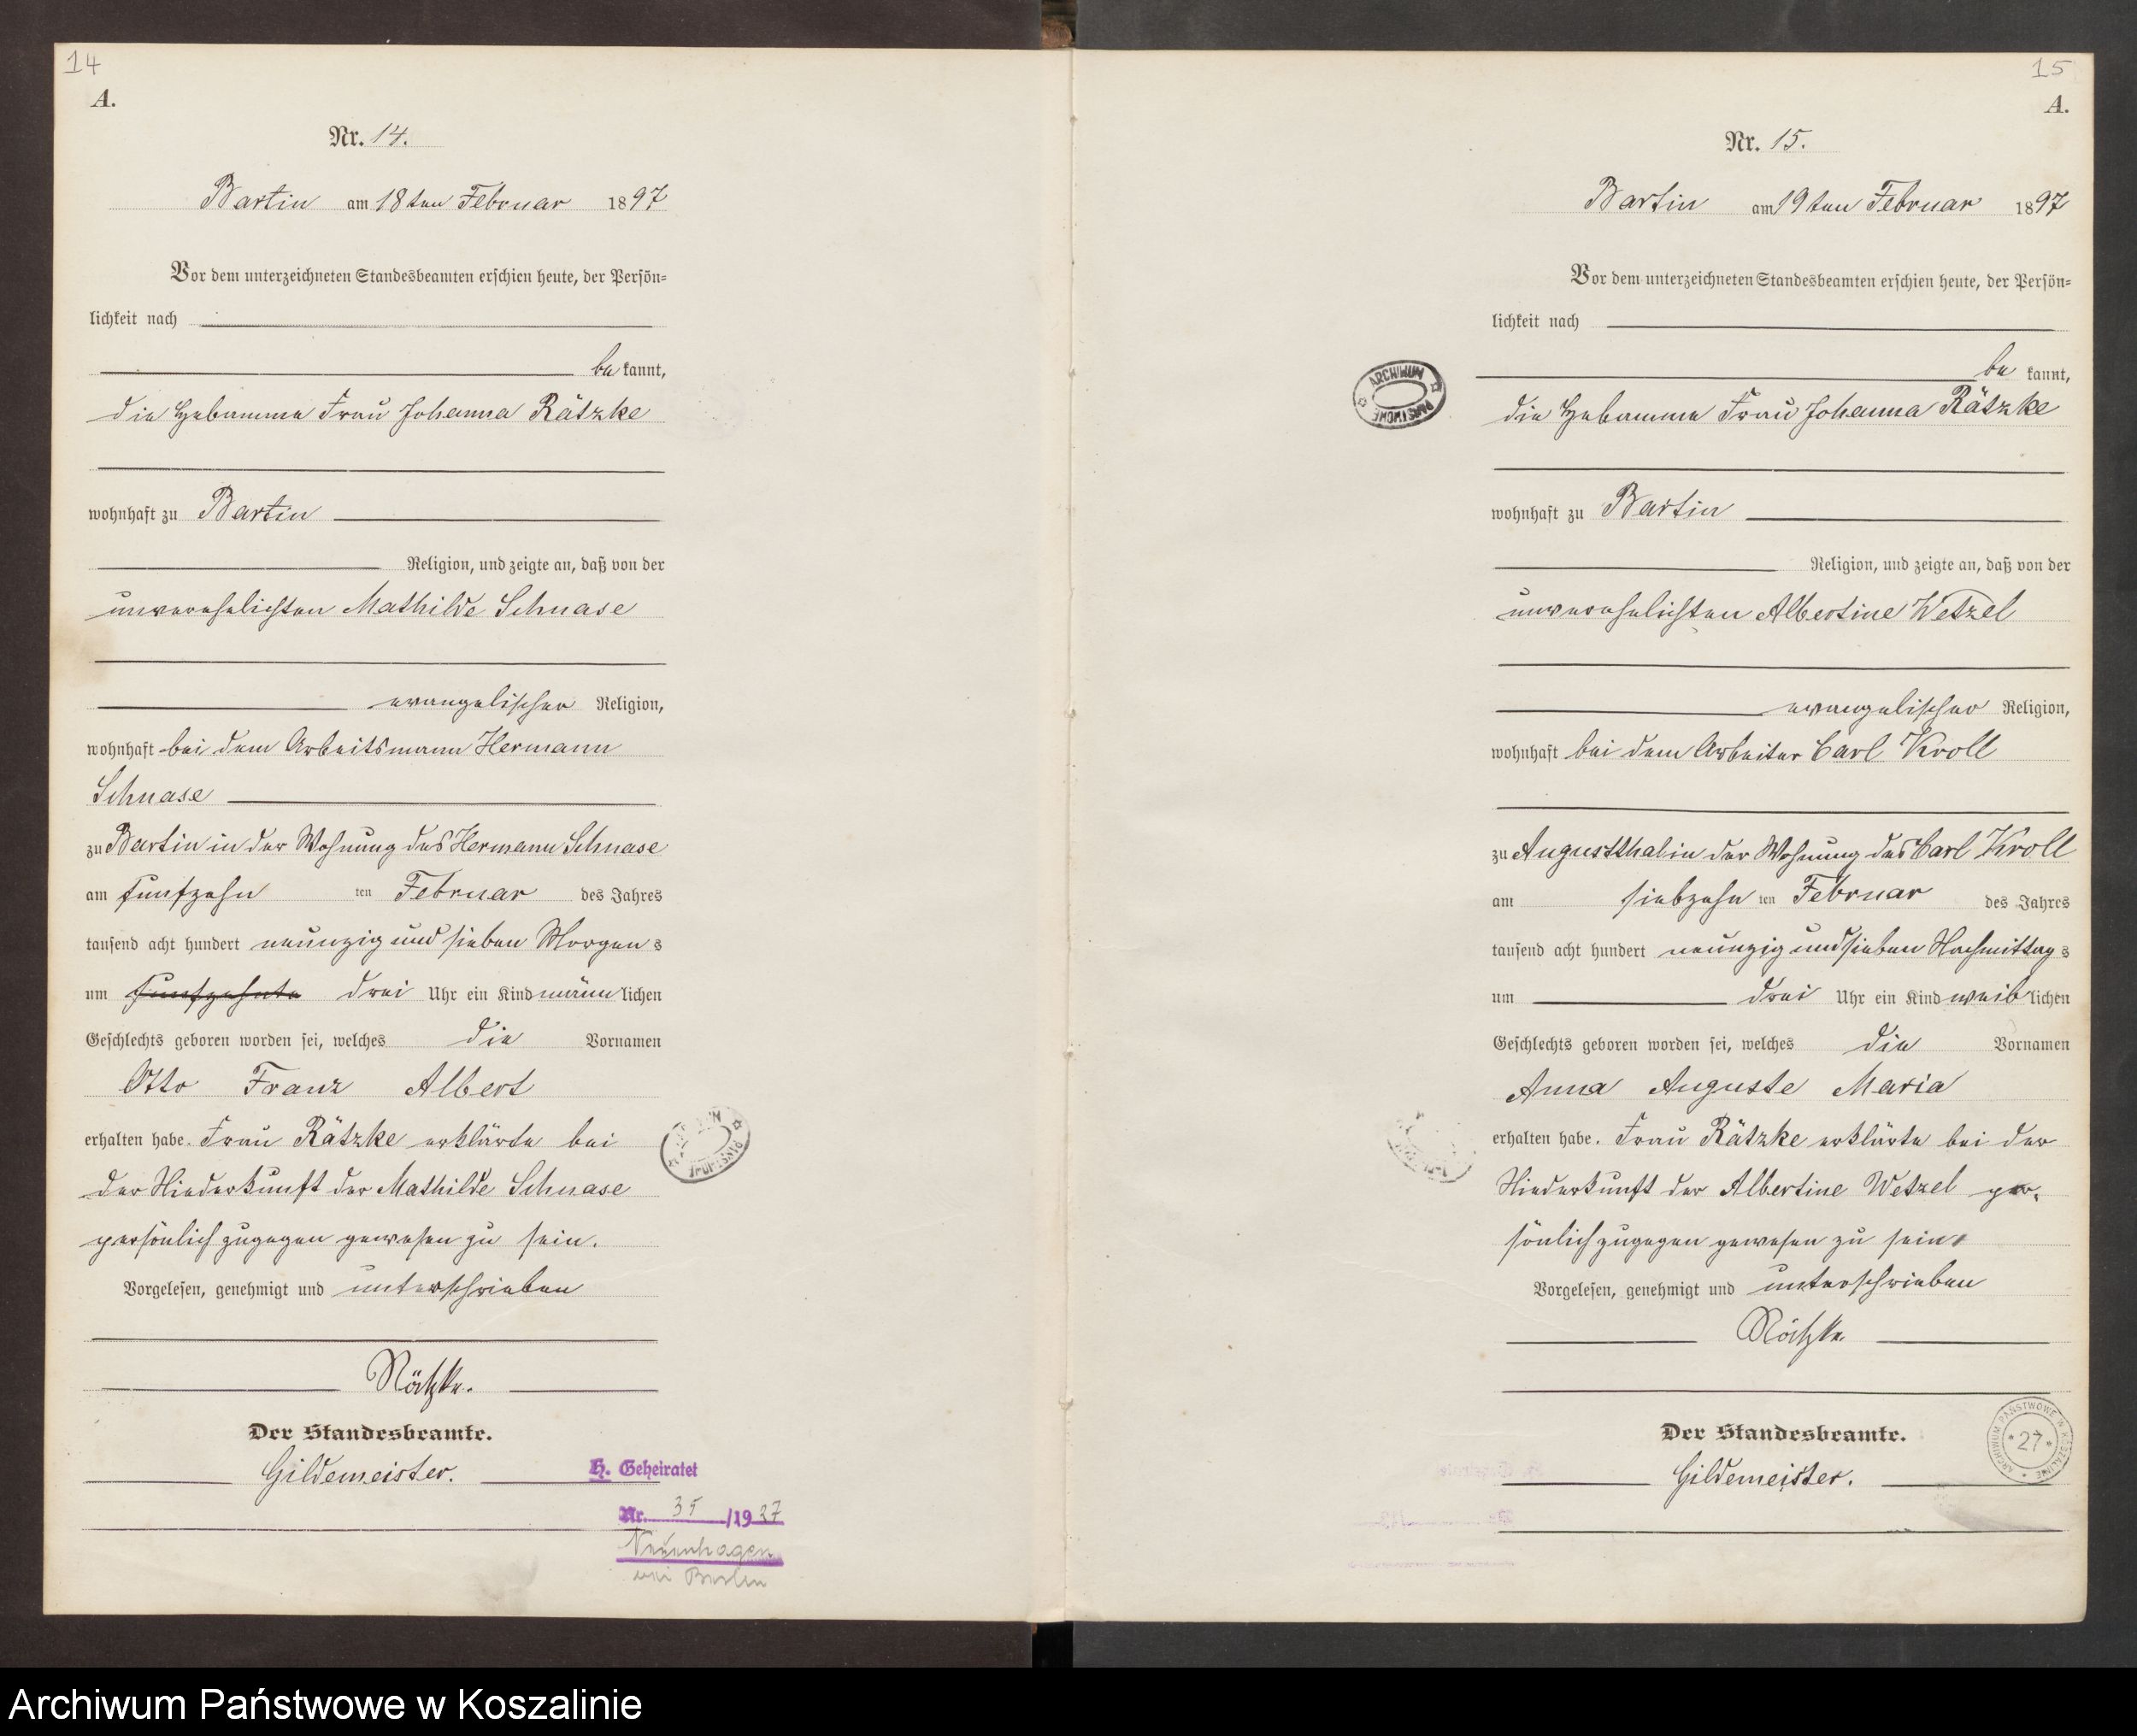 14
A.
Nr. 14.
Bartin am 18ten Februar 1897
Vor dem unterzeichneten Standesbeamten erschien heute, der Persön=
lichkeit nach
be kannt,
die Hebamme Frau Johanna Rätzke
wohnhaft zu Bartin
Religion, und zeigte an, daß von der
unverehelichten Mathilde Schnase
evangelischer Religion,
wohnhaft bei dem Arbeitsmann Hermann
Schnase
zu Bartin in der Wohnung des Hermann Schnase
am fünfzehn ten Februar des Jahres
tausend acht hundert neunzig und sieben Morgens
um fünfzehnte drei Uhr ein Kind männlichen
Geschlechts geboren worden sei, welches die Vornamen
Otto Franz Albert
erhalten habe. Frau Rätzke erklärte bei
der Niederkunft der Mathilde Schnase
persönlich zugegen gewesen zu sein.
Vorgelesen, genehmigt und unterschrieben
Rätzke.
Der Standesbeamte.
Gildemeister.
H. Geheiratet
Nr. 35 /1927
Neuenhagen
bei Berlin
15
A.
Nr. 15.
Bartin am 19ten Februar 1897
Vor dem unterzeichneten Standesbeamten erschien heute, der Persön=
lichkeit nach
be kannt,
ARCHIWUM PAŃSTWOWE
die Hebamme Frau Johanna Rätzke
wohnhaft zu Bartin
Religion, und zeigte an, daß von der
unverehelichten Albertine Wetzel
evangelischer Religion,
wohnhaft bei dem Arbeiter Carl Kroll
zu Augustthal in der Wohnung des Carl Kroll
am siebzehn ten Februar des Jahres
tausend acht hundert neunzig und sieben Nachmittags
um drei Uhr ein Kind weiblichen
Geschlechts geboren worden sei, welches die Vornamen
Anna Auguste Maria
erhalten habe. Frau Rätzke erklärte bei der
Niederkunft der Albertine Wetzel per-
sönlich zugegen gewesen zu sein.
Vorgelesen, genehmigt und unterschrieben
Rätzke
Der Standesbeamte.
Gildemeister.
ARCHIWUM PAŃSTWOWE W KOSZALINIE
* 27 *
Archiwum Państwowe w Koszalinie